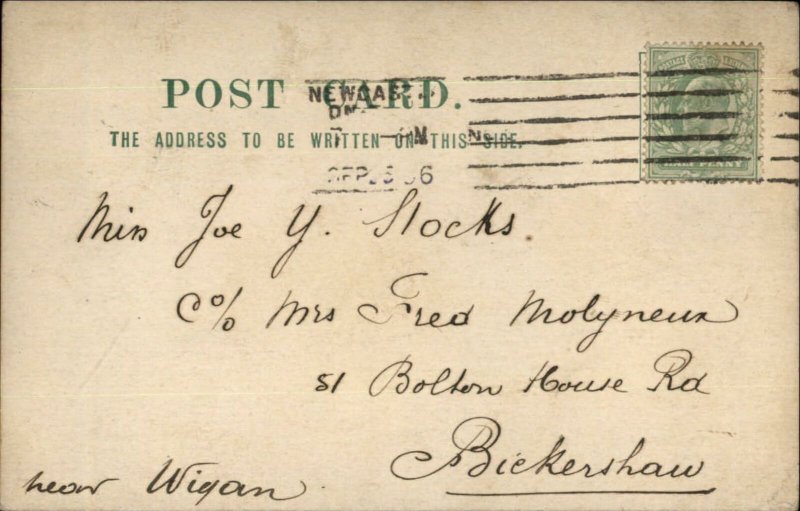 POST CARD.
THE ADDRESS TO BE WRITTEN ON THIS SIDE.
SEP 6 06
Miss Joe Y. Stocks.
c/o Mrs Fred Molyneux
51 Bolton House Rd
Bickershaw
near Wigan.